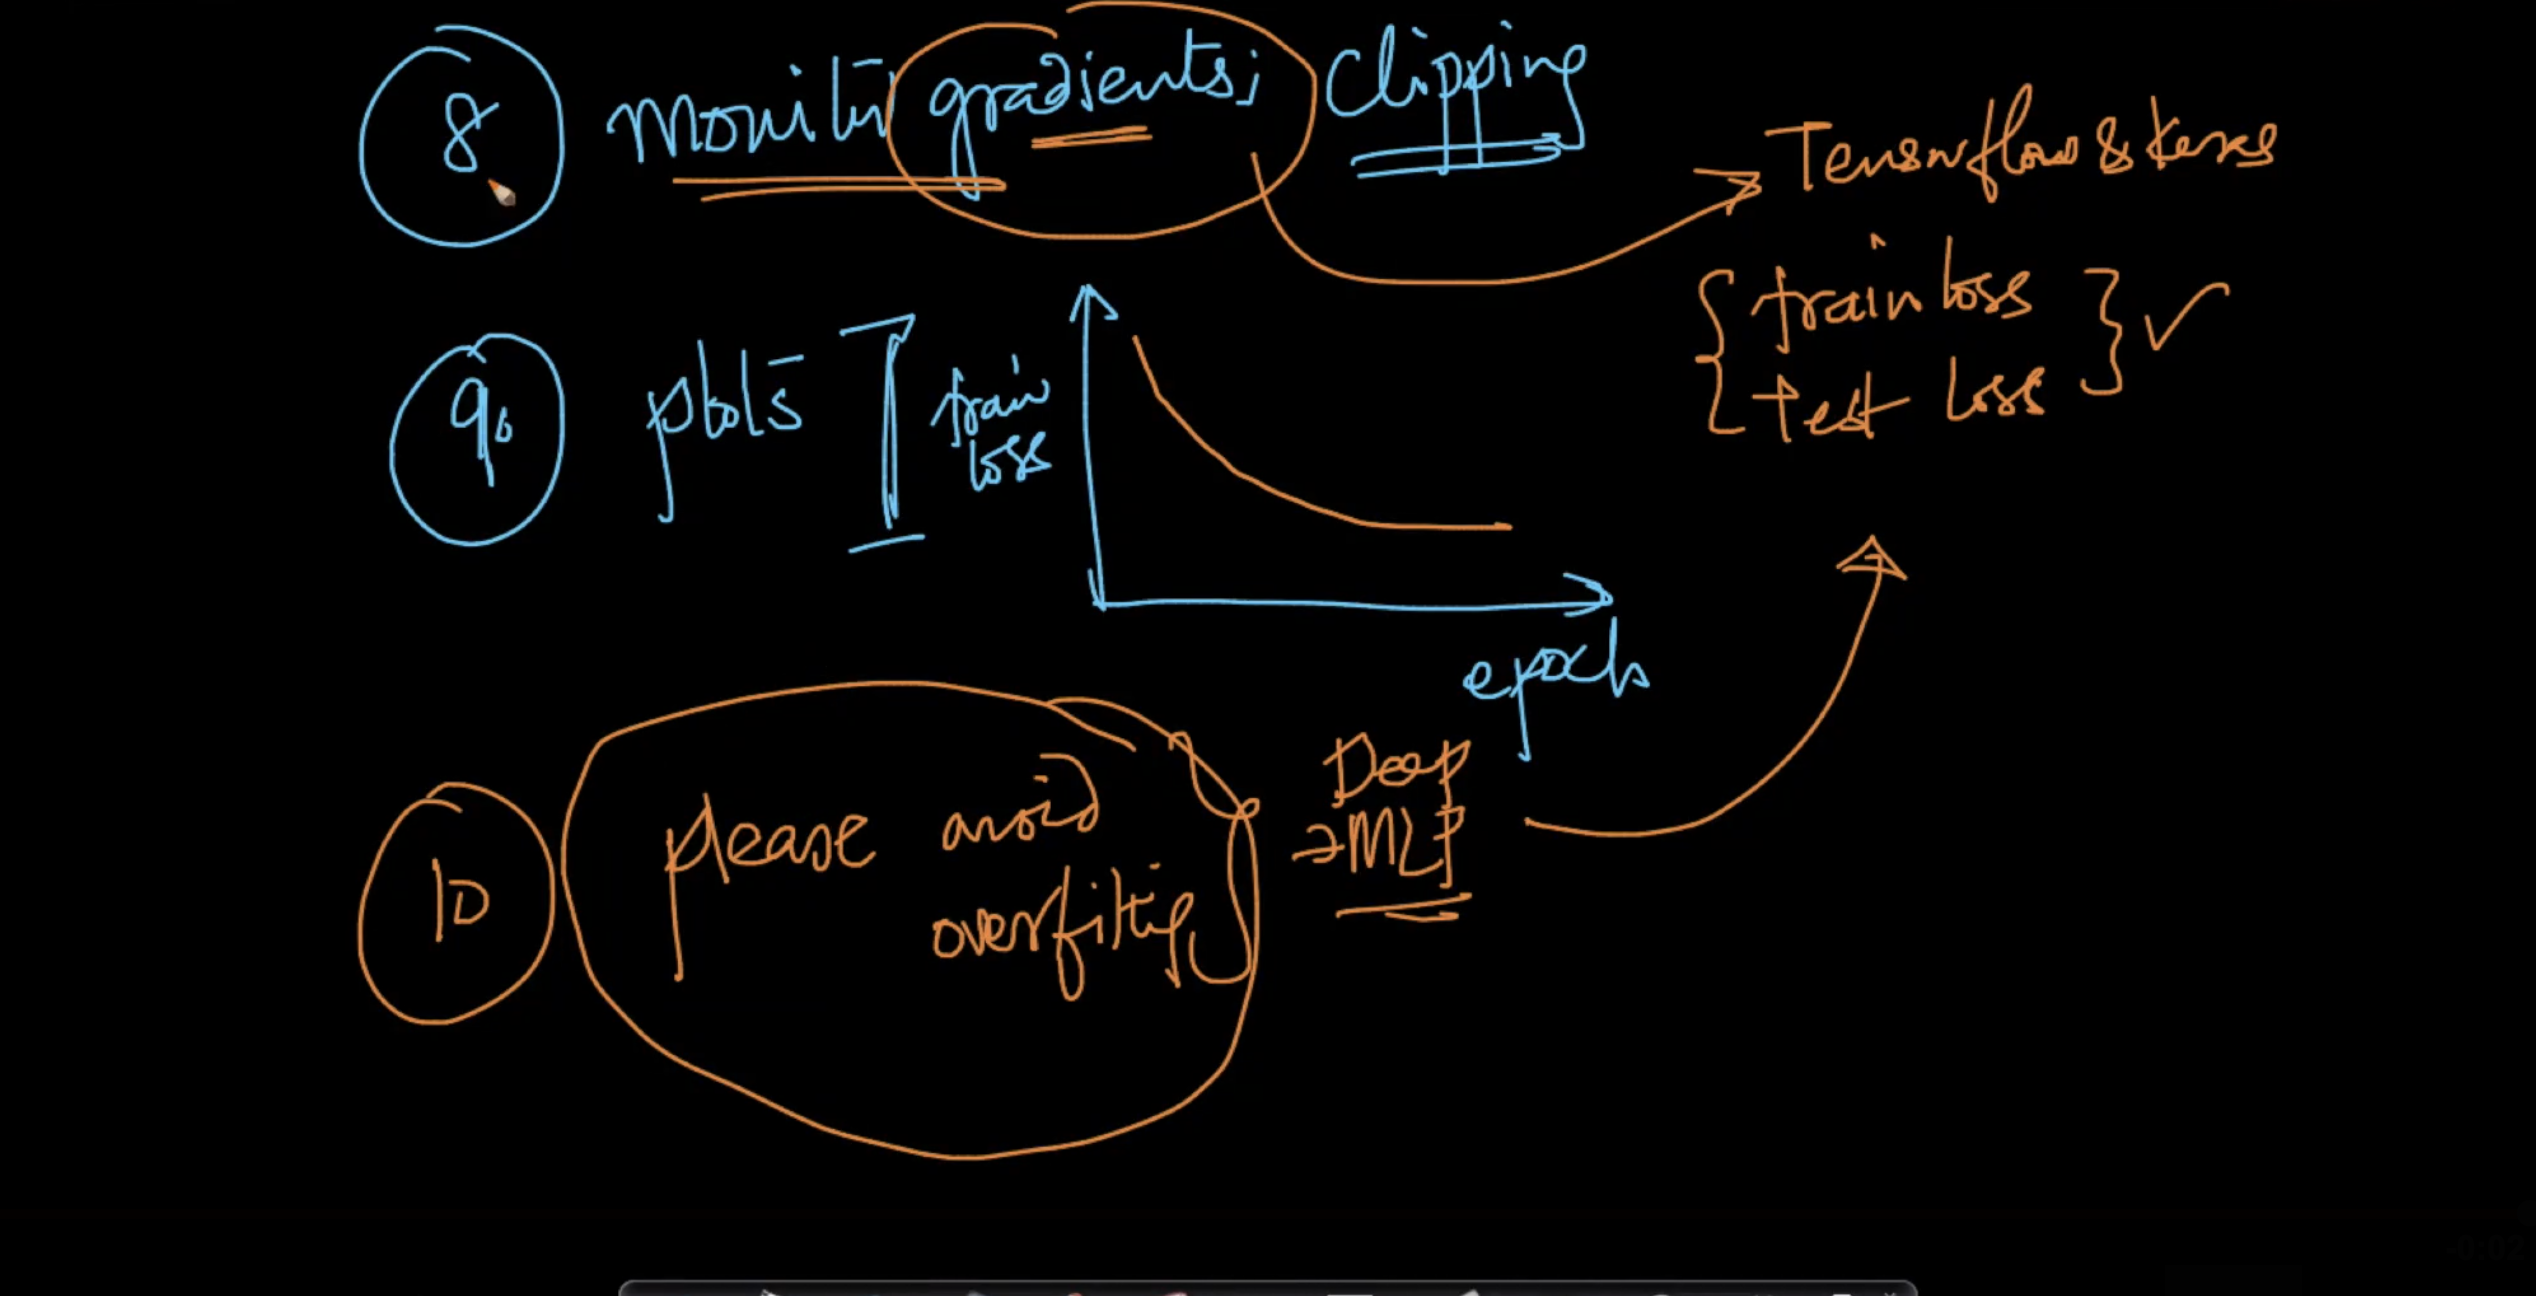 8 monitor gradients; clipping
Tensorflow & keras
train loss
test loss
9. plots
train
loss
epoch
10 please avoid
overfitting
Deep
MLP